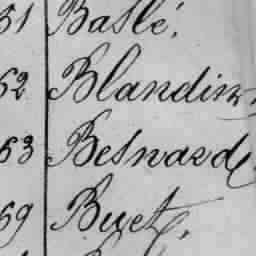 51 Baslé.
52 Blandin
53 Besnard
59 Buet.